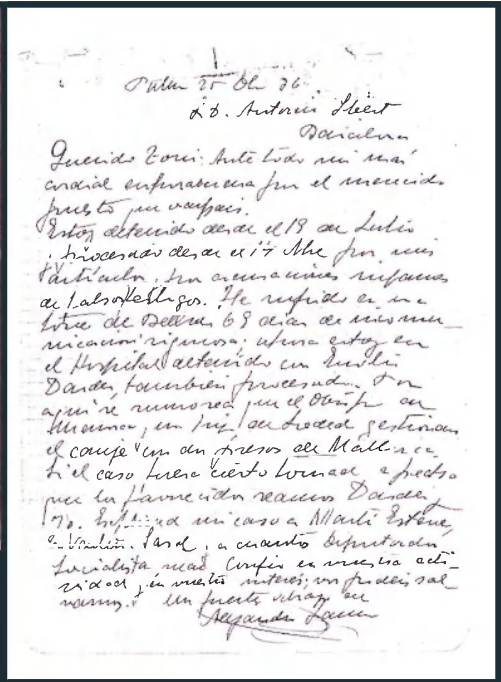 Palma 25 Dbre 36.
Sr. D. Antonio Sbert
Barcelona
Querido Toni: Ante todo mi más
cordial enhorabuena por el merecido
puesto que ocupáis.
Estoy detenido desde el 19 de Julio
y procesado desde el 17 Nbre por mis
artículos. Son acusaciones
de falsos testigos. He sufrido en la
torre de 69 días de incomu-
nicación rigurosa; ahora estoy en
el Hospital detenido con Emilio
Darder, también procesado. Por
aquí se rumorea que el Obispo de
Menorca, un
el canje con dos presos de Mallorca
Si el caso fuera cierto tomad a pecho
que los favorecidos seamos Darder y
yo. mi caso a Martí Esteve,
a cuanto diputado
socialista Confío en vuestra acti-
vidad y en vuestro interés; vos podéis sal-
varnos. Un fuerte abrazo de
Alejandro Jaume